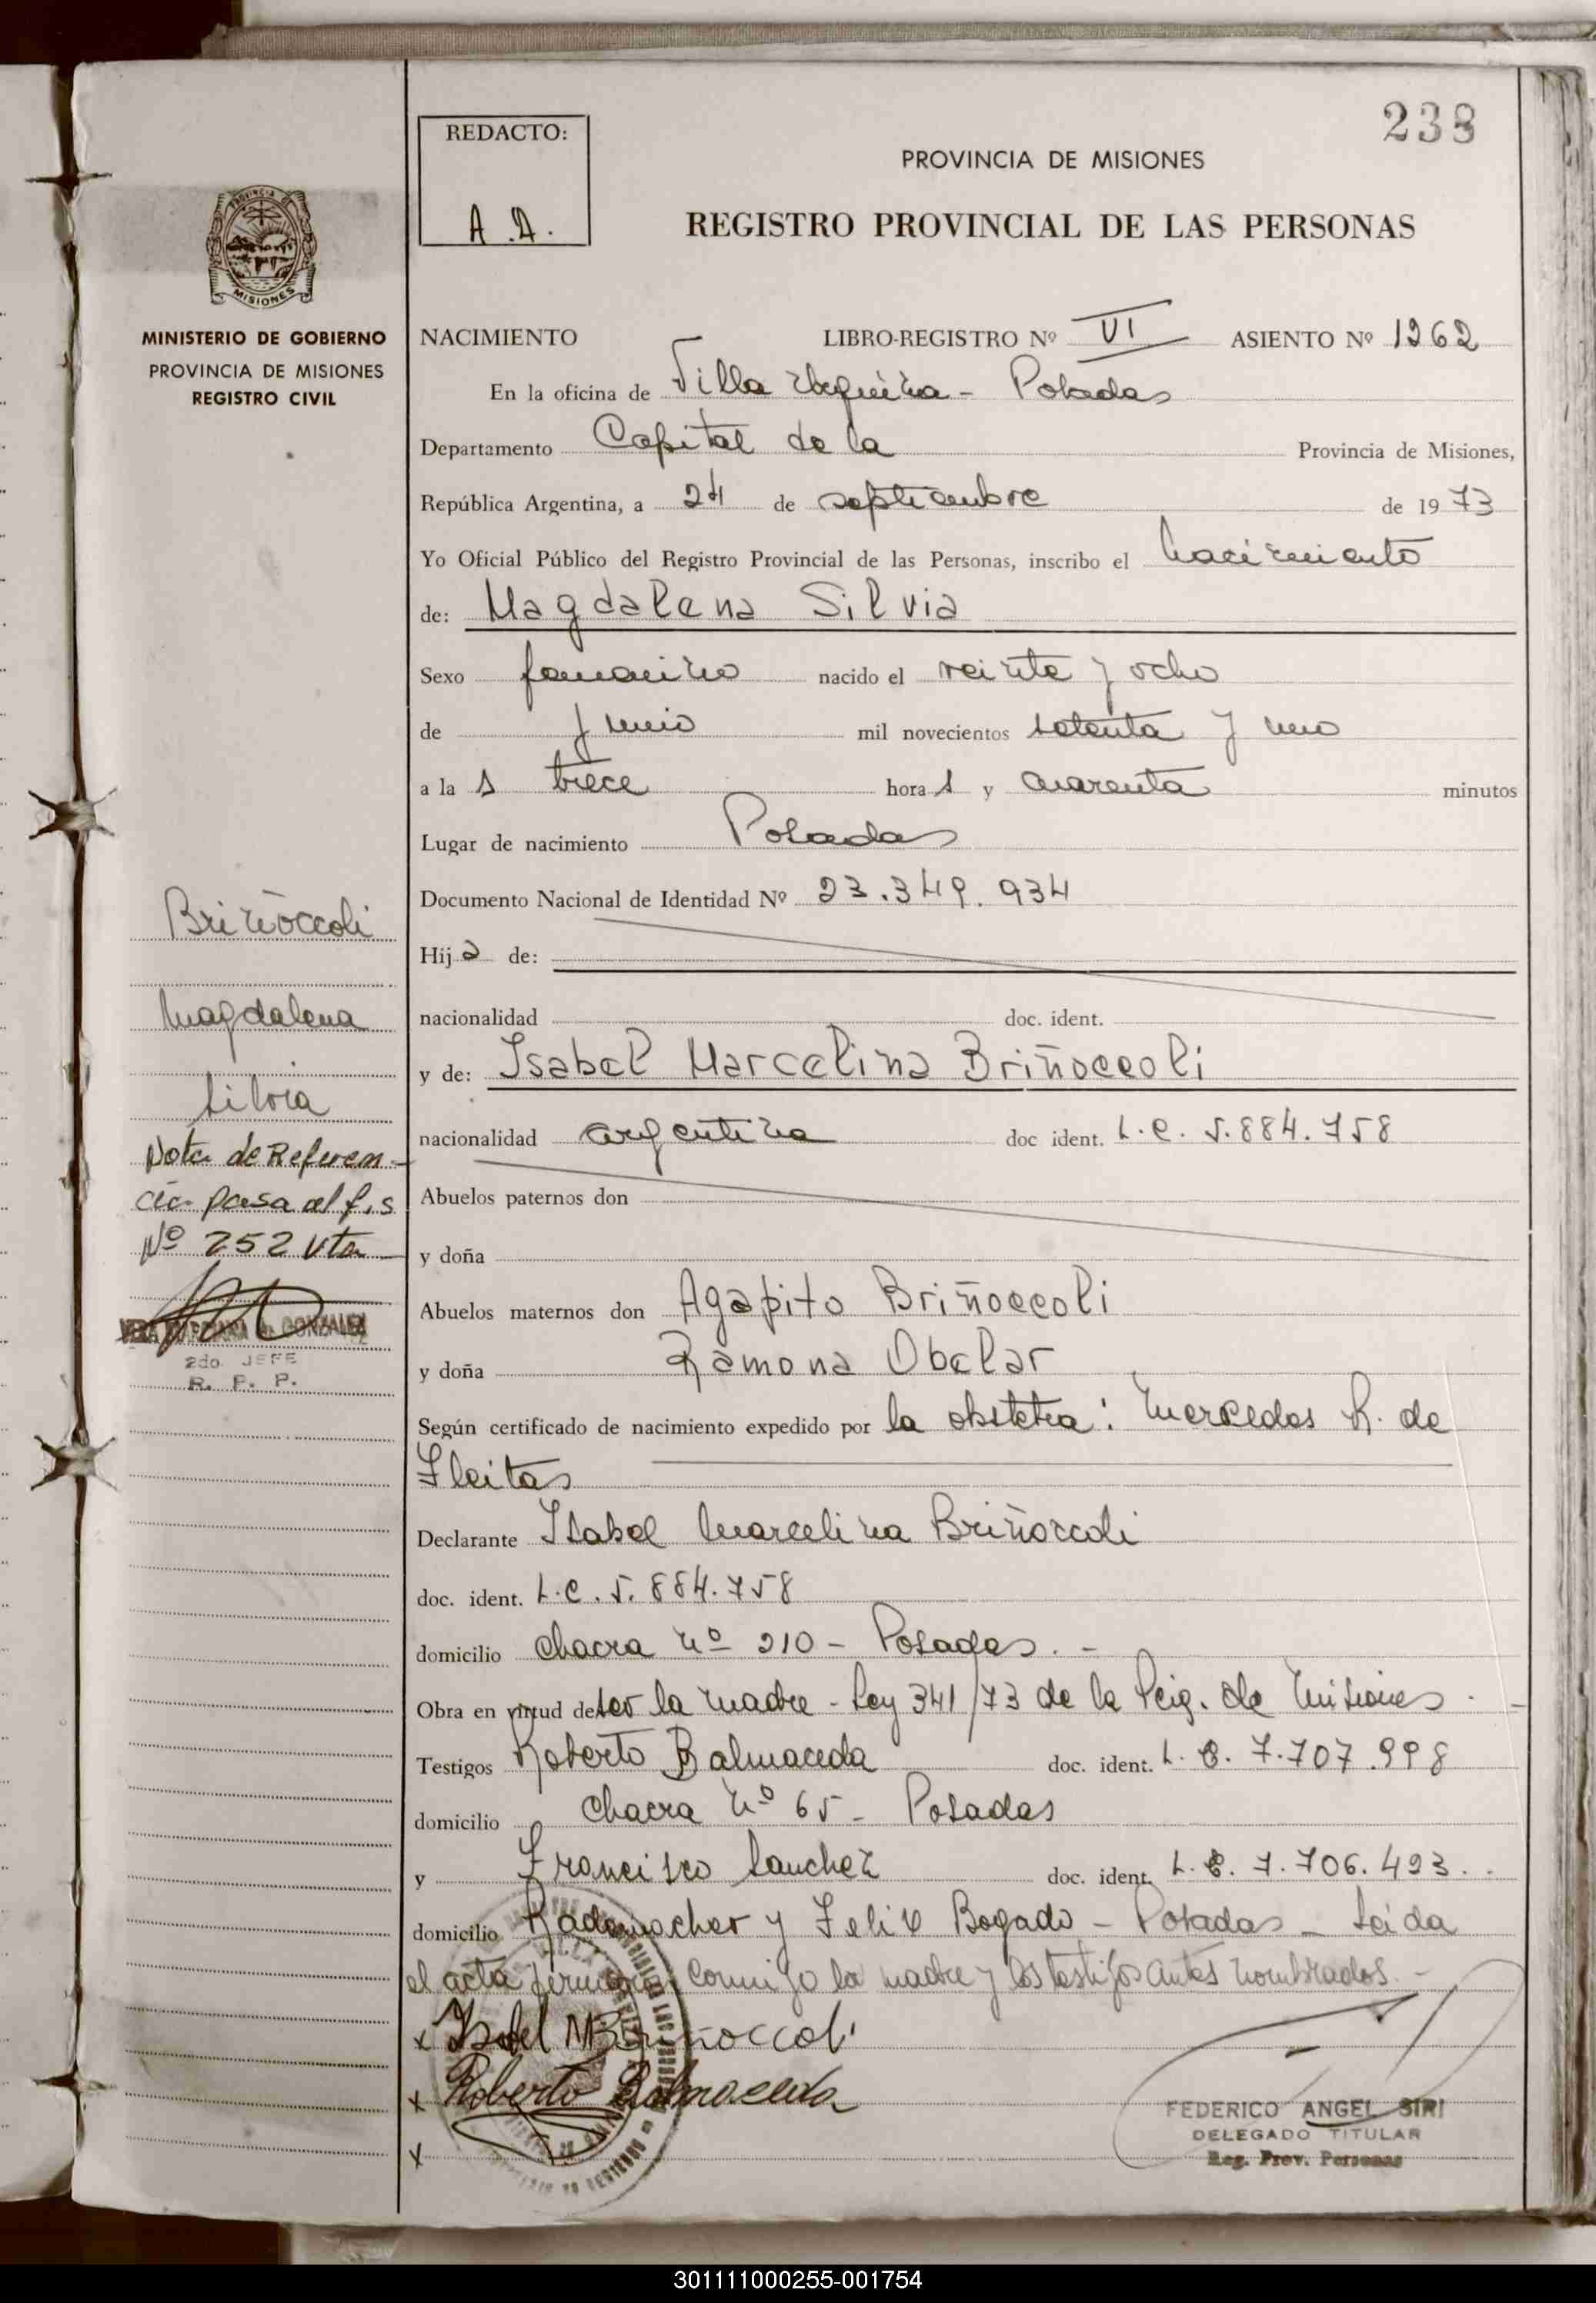 238
REDACTO:
A.A.
PROVINCIA DE MISIONES
REGISTRO PROVINCIAL DE LAS PERSONAS
PROVINCIA DE
MISIONES
MINISTERIO DE GOBIERNO
PROVINCIA DE MISIONES
REGISTRO CIVIL
NACIMIENTO LIBRO-REGISTRO Nº VI ASIENTO Nº 1262
En la oficina de Villa Urquiza - Posadas
Departamento Capital de la Provincia de Misiones,
República Argentina, a 24 de septiembre de 1973
Yo Oficial Público del Registro Provincial de las Personas, inscribo el nacimiento
de: Magdalena Silvia
Sexo femenino nacido el veinte y ocho
de junio mil novecientos setenta y uno
a la s trece hora s y cuarenta minutos
Lugar de nacimiento Posadas
Documento Nacional de Identidad Nº 23.349.934
Hij a de:
nacionalidad doc. ident.
y de: Isabel Marcelina Briñoccoli
nacionalidad argentina doc ident. L.C. 5.884.758
Abuelos paternos don
y doña
Abuelos maternos don Agapito Briñoccoli
y doña Ramona Obelar
Según certificado de nacimiento expedido por la obstetra: Mercedes R. de
Fleitas
Declarante Isabel Marcelina Briñoccoli
doc. ident. L.C. 5.884.758
domicilio chacra nº 210 - Posadas. -
Obra en virtud de ser la madre - Ley 341/73 de la Pcia. de Misiones. -
Testigos Roberto Balmaceda doc. ident. L. E. 7.707.998
domicilio chacra nº 65 - Posadas
y Francisco Sanchez doc. ident. L. E. 7.706.493. -
domicilio Rademacher y Felix Bogado - Posadas - Leida
el acta firman conmigo la madre y los testigos antes nombrados. -
x Isabel M Briñoccoli
x Roberto Balmaceda
x
FEDERICO ANGEL SIRI
DELEGADO TITULAR
Reg. Prov. Personas
Briñoccoli
Magdalena
Silvia
Nota de Referen-
cia pasa al f.s
Nº 252 Vta
GONZALEZ
2do. JEFE
R. P. P.
301111000255-001754